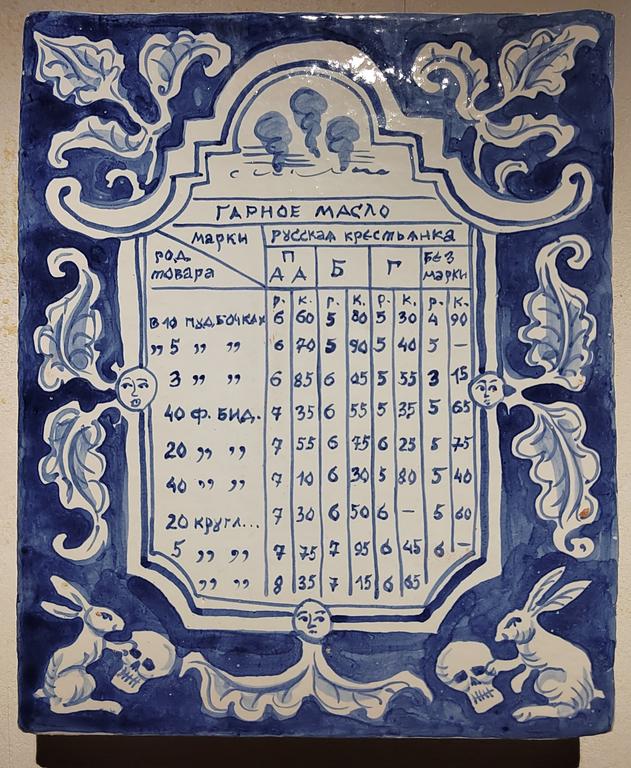 ГАРНОЕ МАСЛО
марки РУССКАЯ КРЕСТЬЯНКА
род товара П А А Б Г БЕЗ марки
р. к. р. к. р. к. р. к.
в 10 ПУД. БОЧКАХ 6 60 5 80 5 30 4 90
„ 5 „ „ 6 70 5 90 5 40 5 —
3 „ „ 6 85 6 05 5 55 3 15
40 Ф. БИД. 7 35 6 55 5 35 5 65
20 „ „ 7 55 6 75 6 25 5 75
40 „ „ 7 10 6 30 5 80 5 40
20 кругл... 7 30 6 50 6 — 5 60
5 „ „ 7 75 7 95 6 45 6 —
„ „ 8 35 7 15 6 65